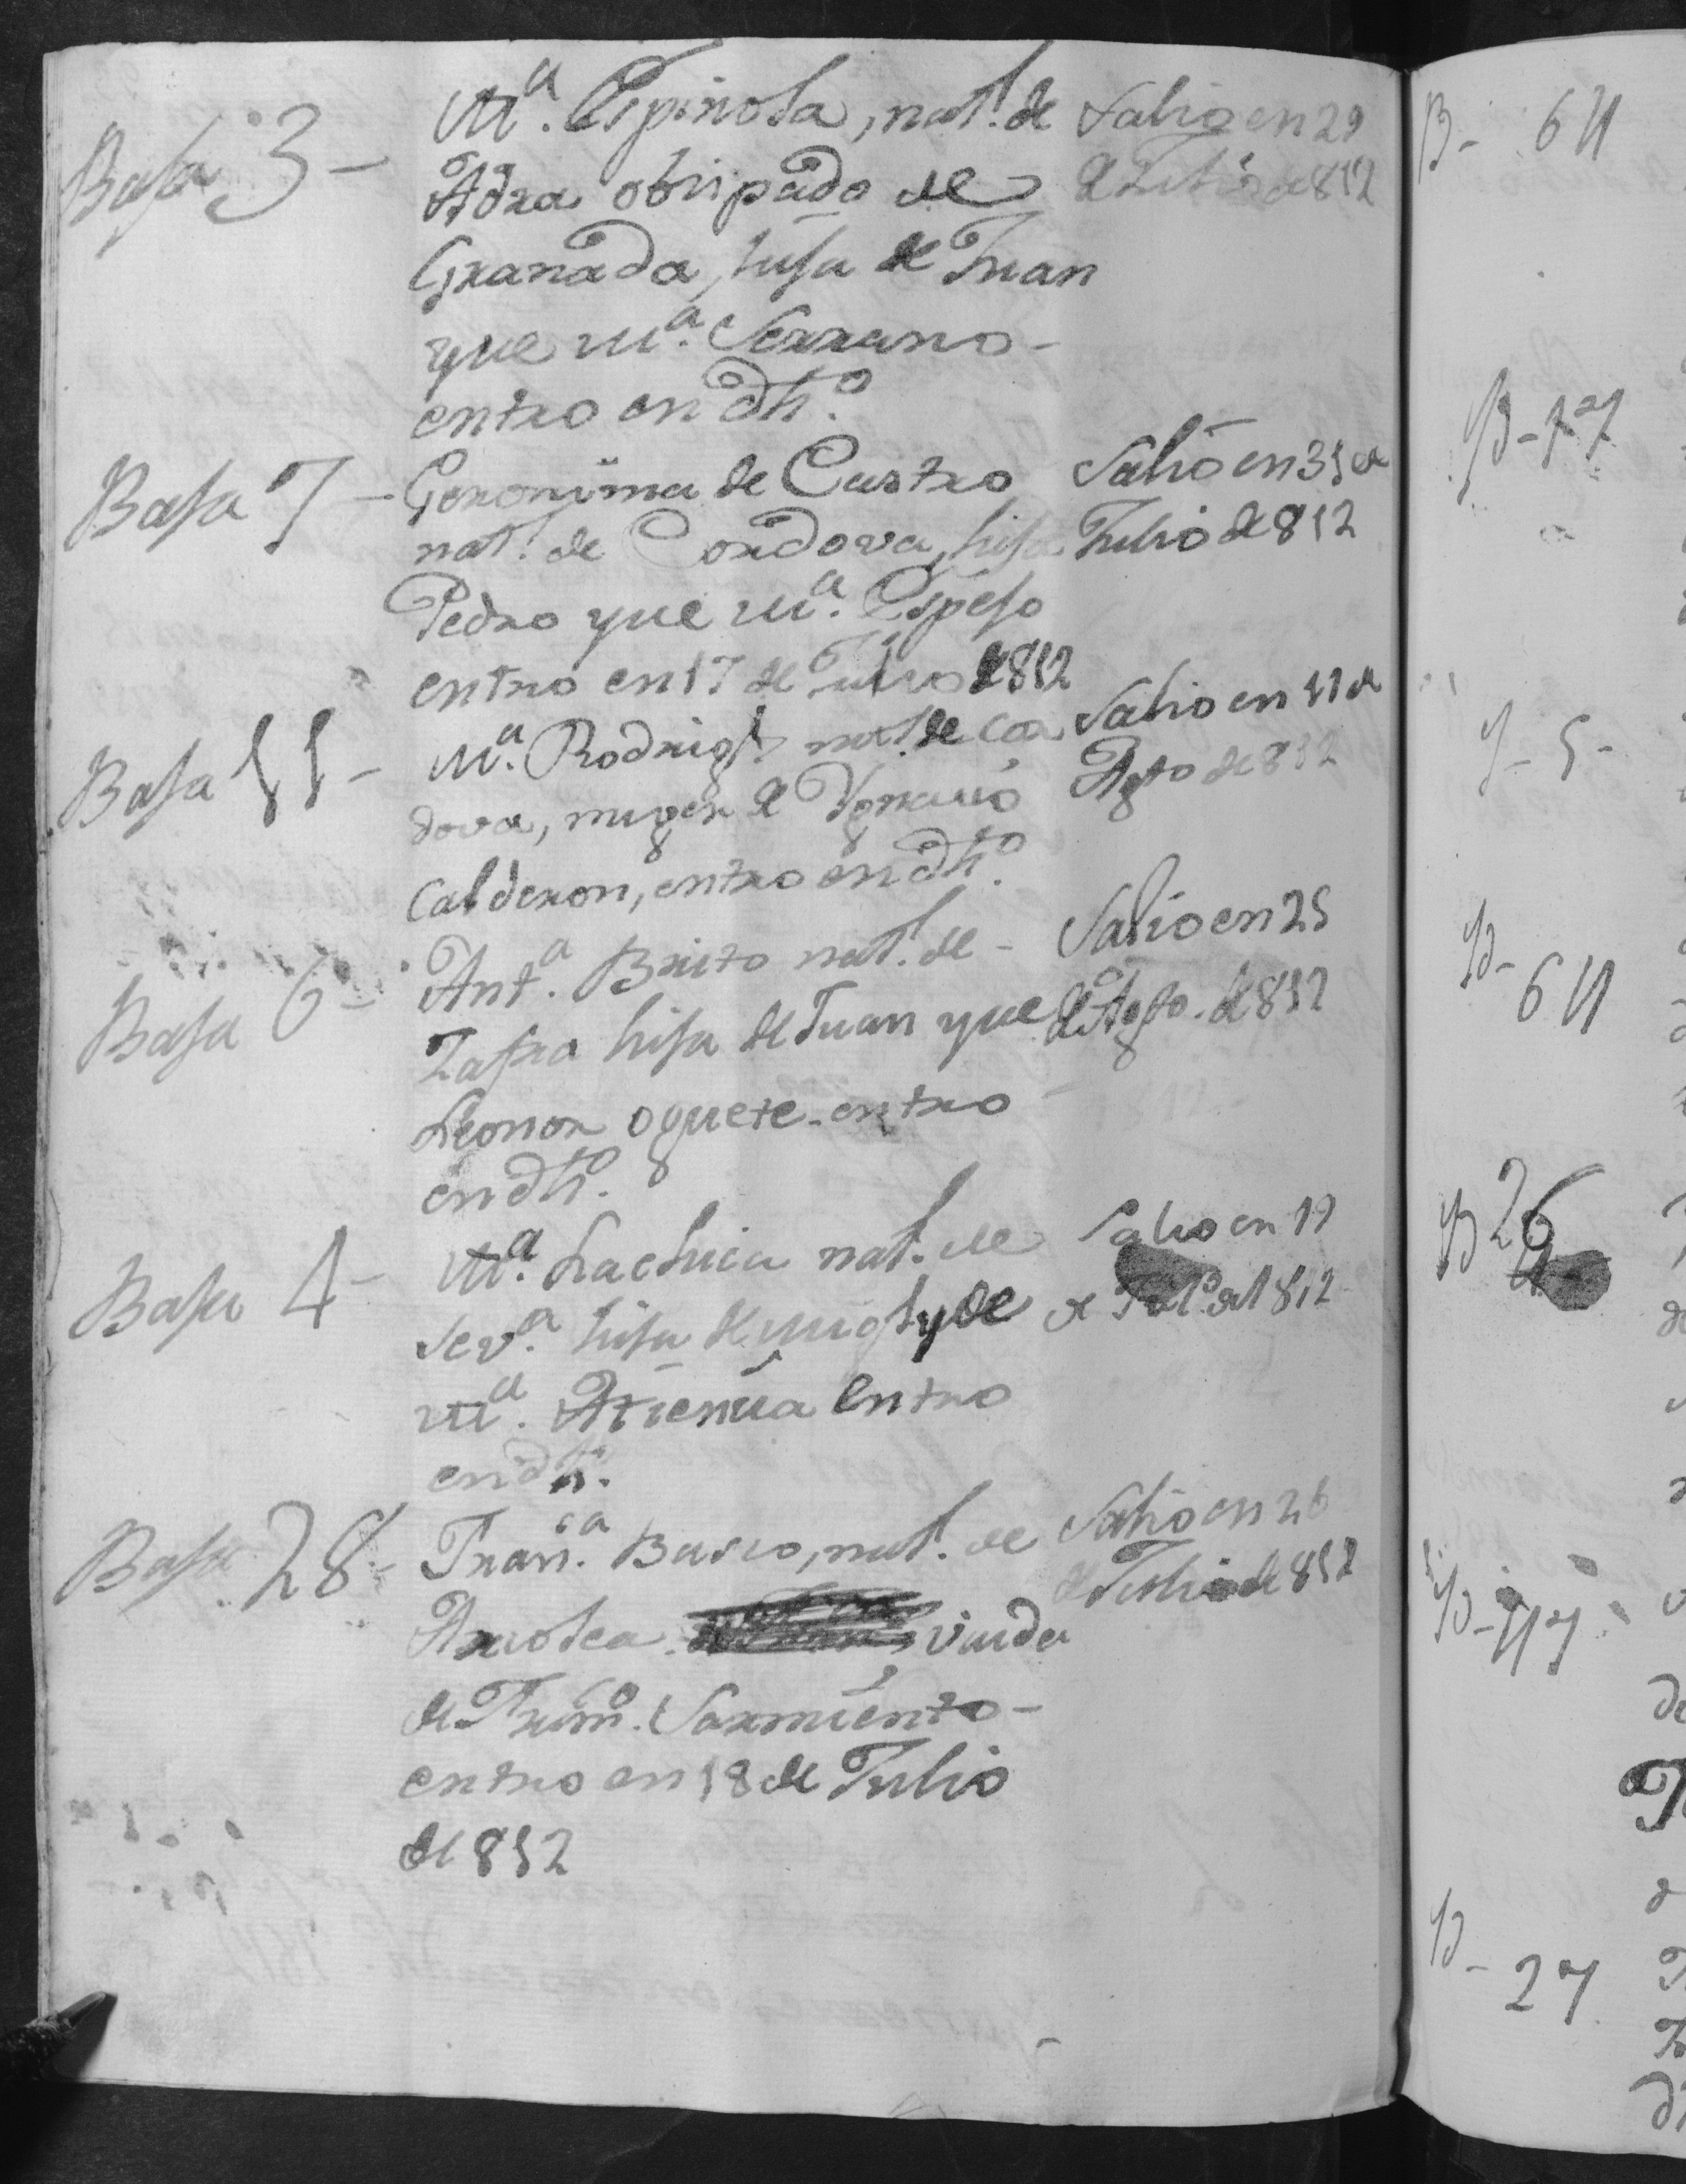 Baja 3 -
Mª. Espinosa, natl. de
Adra obispado de
Granada, hija de Juan
y de Mª. Serrano -
entro en dhº.
Salio en 29
de Julio de 812
Baja 7 -
Geronima de Castro
natl. de Cordova, hija
Pedro y de Mª. Espejo
entro en 17 de Julio de 812
Salio en 31 de
Julio de 812
Baja 11 -
Mª. Rodrigz. natl. de Cor
dova, muger de Ygnacio
Calderon, entro en dhº.
Salio en 11 de
Agto de 812
Baja 6 -
Antª. Brito natl. de -
Zafra hija de Juan y de
Leonor oguete - entro
en dhº.
Salio en 25
de Agto. de 812
Baja 4 -
Mª. Lachica natl. de
Sevª. hija de Migl. y de
Mª. Atiencia entro
en dh.
Salio en 19
de Jul. de 1812
Baja 28 -
Franca. Basco, natl. de
viuda
de Sarmiento -
entro en 18 de Julio
de 812
Salio en 26
de Julio de 812
B - 64
B - 77
5 -
B - 64
B 26
B - 47
B - 27